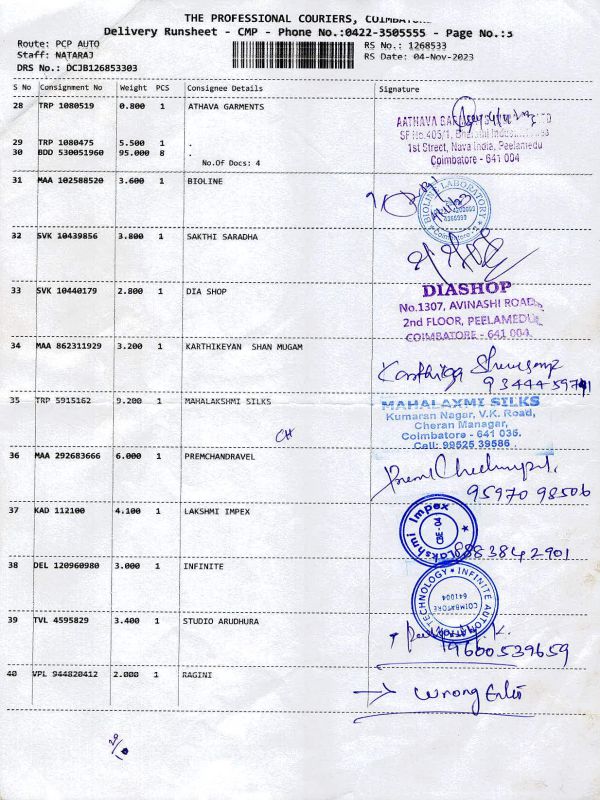 THE PROFESSIONAL COURIERS, COIMBATORE
Delivery Runsheet - CMP - Phone No.:0422-3505555 - Page No.:3
Route: PCP AUTO
Staff: NATARAJ
DRS No.: DCJB126853303
RS No.: 1268533
RS Date: 04-Nov-2023
S No Consignment No Weight PCS Consignee Details Signature
28 TRP 1080519 0.800 1 ATHAVA GARMENTS
29 TRP 1080475 5.500 1 .
30 BDD 530051960 95.000 8 .
No.Of Docs: 4
AATHAVA
SF No.405/1,
1st Street, Nava India, Peelamedu
Coimbatore - 641 004
31 MAA 102588520 3.600 1 BIOLINE
BIOLINE LABORATORY
Coimbatore - 2
32 SVK 10439856 3.800 1 SAKTHI SARADHA
33 SVK 10440179 2.800 1 DIA SHOP
DIASHOP
No.1307, AVINASHI ROAD,
2nd FLOOR, PEELAMEDU,
COIMBATORE - 641 004.
34 MAA 862311929 3.200 1 KARTHIKEYAN SHAN MUGAM
35 TRP 5915162 9.200 1 MAHALAKSHMI SILKS
MAHALAXMI SILKS
Kumaran Nagar, V.K. Road,
Cheran Managar,
Coimbatore - 641 035.
Call: 99525 39586
CH
36 MAA 292683666 6.000 1 PREMCHANDRAVEL
95970 98506
37 KAD 112100 4.100 1 LAKSHMI IMPEX
Lakshmi Impex
CBE-04
8883842901
38 DEL 120960980 3.000 1 INFINITE
INFINITE AUTOMATION TECHNOLOGY
COIMBATORE
641004
39 TVL 4595829 3.400 1 STUDIO ARUDHURA
9600539659
40 VPL 944820412 2.000 1 RAGINI
→ wrong Entri